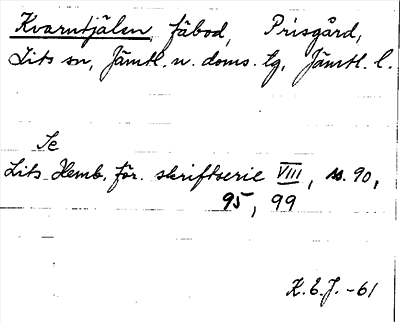 Kvarntjälen, fäbod, Prisgård,
Lits sn, Jämtl. n. doms. lg, Jämtl. l.
Se
Lits Hemb. för. skriftserie VIII, ss. 90,
95, 99
K.E.J. -61